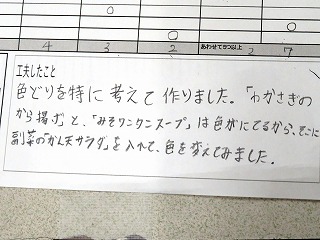 4 3 2 あわせて5つ以上 2 7
工夫したこと
色どりを特に考えて作りました。「わかさぎの
から揚げ」と、「みそワンタンスープ」は色がにてるから、そこに
副菜の「かん天サラダ」を入れて、色を変えてみました。